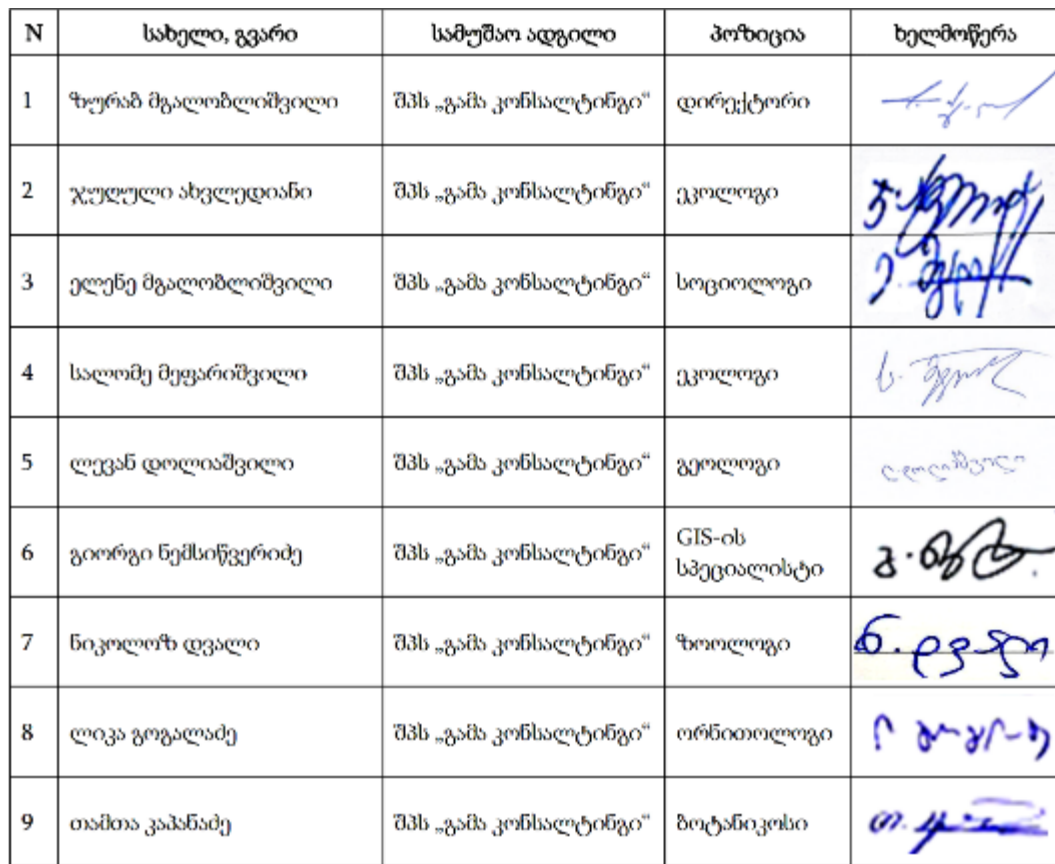 N სახელი, გვარი სამუშაო ადგილი პოზიცია ხელმოწერა
1 ზურაბ მგალობლიშვილი შპს „გამა კონსალტინგი“ დირექტორი
2 ჯუღული ახვლედიანი შპს „გამა კონსალტინგი“ ეკოლოგი
3 ელენე მგალობლიშვილი შპს „გამა კონსალტინგი“ სოციოლოგი
4 სალომე მეფარიშვილი შპს „გამა კონსალტინგი“ ეკოლოგი
5 ლევან დოლიაშვილი შპს „გამა კონსალტინგი“ გეოლოგი ლ.დოლიაშვილი
6 გიორგი ნემსიწვერიძე შპს „გამა კონსალტინგი“ GIS-ის
სპეციალისტი
7 ნიკოლოზ დვალი შპს „გამა კონსალტინგი“ ზოოლოგი ნ. დვალი
8 ლიკა გოგალაძე შპს „გამა კონსალტინგი“ ორნითოლოგი
9 თამთა კაპანაძე შპს „გამა კონსალტინგი“ ბოტანიკოსი